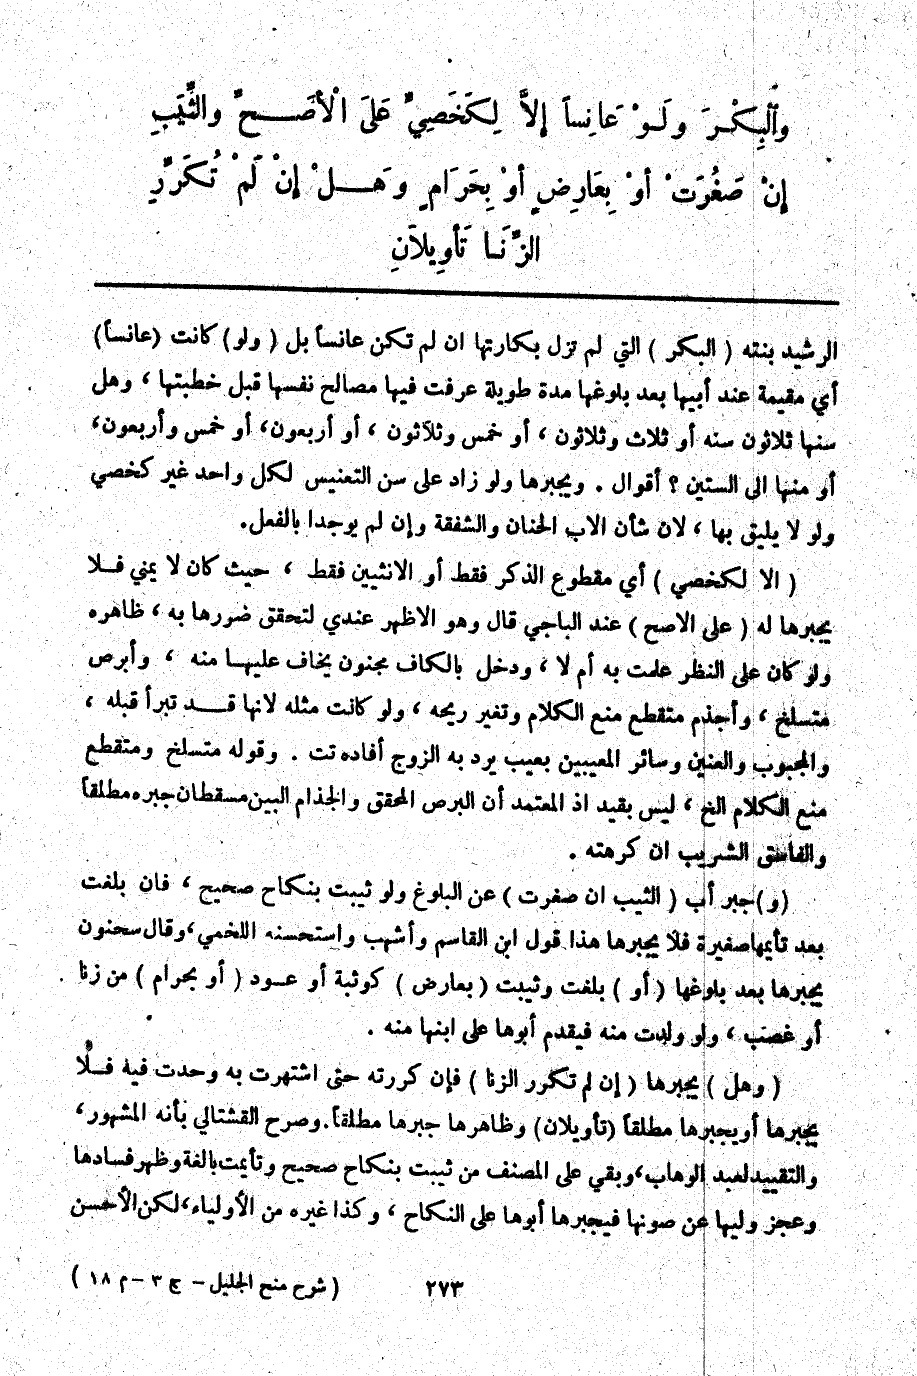 وَالْبِكْرَ وَلَوْ عَانِساً إِلاَّ لِكَخَصِيٍّ عَلَى الْأَصَحِّ وَالثَّيِّبِ
إِنْ صَغُرَتْ أَوْ بِعَارِضٍ أَوْ بِحَرَامٍ وَهَلْ إِنْ لَمْ تُكَرِّرِ
الزِّنَا تَأْوِيلاَنِ
الرشيد بنته ( البكر ) التي لم تزل بكارتها ان لم تكن عانساً بل ( ولو) كانت (عانساً)
أي مقيمة عند أبيها بعد بلوغها مدة طويلة عرفت فيها مصالح نفسها قبل خطبتها ، وهل
سنها ثلاثون سنه أو ثلاث وثلاثون ، أو خمس وثلاثون ، أو أربعون، أو خمس وأربعون،
أو منها الى الستين ؟ أقوال . ويجبرها ولو زاد على سن التعنيس لكل واحد غير كخصي
ولو لا يليق بها ، لان شأن الاب الحنان والشفقة وإن لم يوجدا بالفعل.
( الا لكخصي ) أي مقطوع الذكر فقط أو الانثيين فقط ، حيث كان لا يمني فلا
يجبرها له ( على الاصح ) عند الباجي قال وهو الاظهر عندي لتحقق ضررها به ، ظاهره
ولو كان على النظر علمت به أم لا ، ودخل بالكاف مجنون يخاف عليها منه ، وأبرص
متسلخ ، وأجذم متقطع منع الكلام وتغير ريحه ، ولو كانت مثله لانها قد تبرأ قبله ،
والمجبوب والعنين وسائر المعيبين بعيب يرد به الزوج أفاده تت . وقوله متسلخ ومتقطع
منع الكلام الخ ، ليس بقيد اذ المعتمد أن البرص المحقق والجذام البين مسقطان جبره مطلقاً
والفاسق الشريب ان كرهته .
(و) جبر أب ( الثيب ان صغرت ) عن البلوغ ولو ثيبت بنكاح صحيح ، فان بلغت
بعد تأيمها صغيرة فلا يجبرها هذا قول ابن القاسم وأشهب واستحسنه اللخمي، وقال سحنون
يجبرها بعد بلوغها ( أو ) بلغت وثيبت ( بعارض ) كوثبة أو عود ( أو بحرام ) من زنا
أو غصب ، ولو ولدت منه فيقدم أبوها على ابنها منه .
( وهل ) يجبرها ( إن لم تكرر الزنا ) فإن كررته حتى اشتهرت به وحدت فيه فلا
يجبرها أو يجبرها مطلقاً (تأويلان) وظاهرها جبرها مطلقاً. وصرح القشتالي بأنه المشهور،
والتقييد لعبد الوهاب، وبقي على المصنف من ثيبت بنكاح صحيح وتأيمت بالغة وظهر فسادها
وعجز وليها عن صونها فيجبرها أبوها على النكاح ، وكذا غيره من الأولياء، لكن الأحسن
٢٧٣ ( شرح منح الجليل - ج ٣ - م ١٨ )